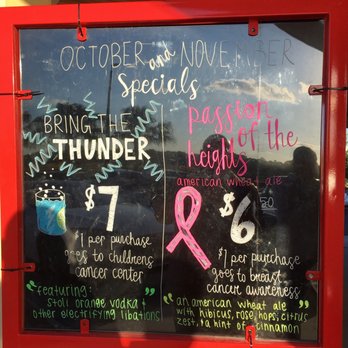 OCTOBER and NOVEMBER
Specials
BRING THE
THUNDER
$7
$1 per purchase
goes to childrens
cancer center
"featuring:
stoli orange vodka &
other electrifying libations"
passion
of the
heights
american wheat ale
$6.50
$1 per purchase
goes to breast
cancer awareness
"an american wheat ale
with hibiscus, rose hops, citrus
zest, & a hint of cinnamon"